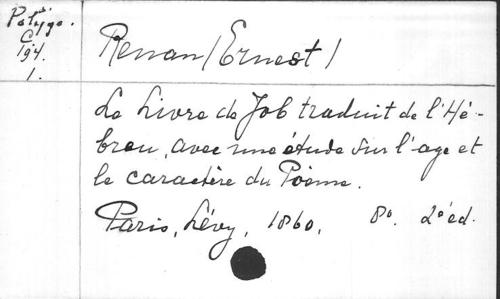 Polygo.
C
194.
1.
Renan (Ernest)
Le Livre de Job traduit de l'Hé-
breu, avec une étude sur l'age et
le caractère du Poème.
Paris, Lévy, 1860. 8º. 2º éd.